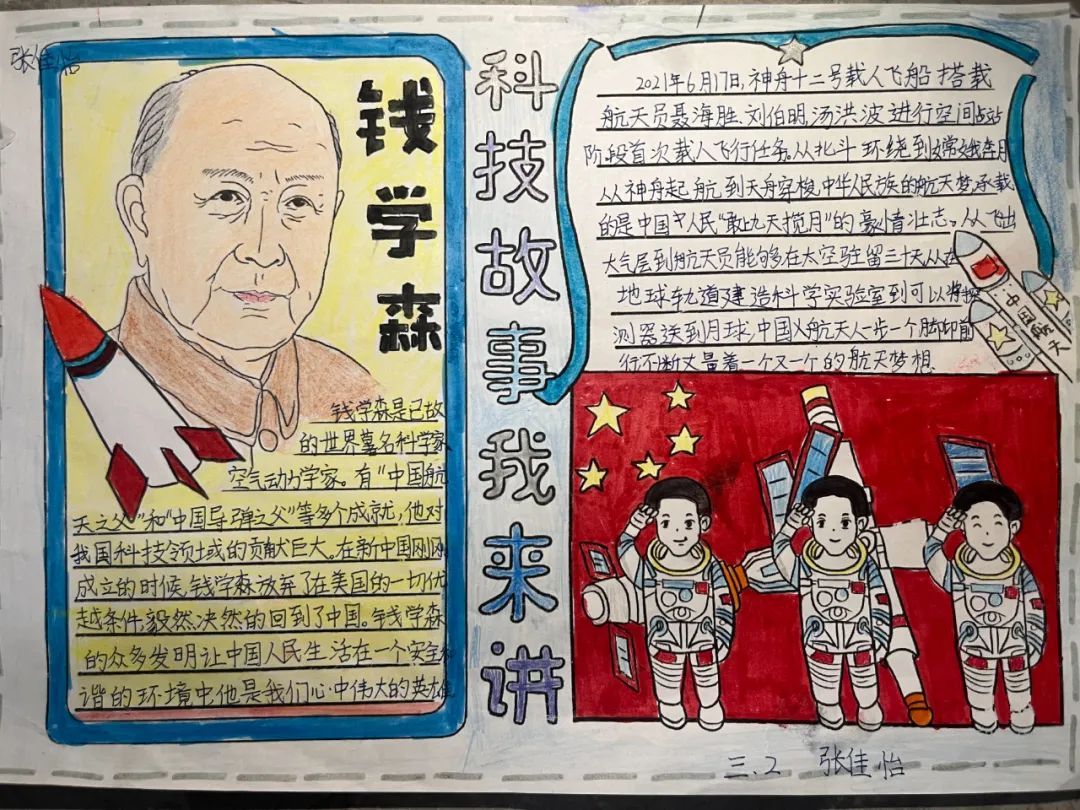 张佳怡
钱学森
钱学森是已故
的世界著名科学家
空气动力学家。有“中国航
天之父”和“中国导弹之父”等多个成就,他对
我国科技领土或的贡献巨大。在新中国刚刚
成立的时候,钱学森放弃了在美国的一切优
越条件毅然决然的回到了中国。钱学森
的众多发明让中国人民生活在一个安全和
谐的环境中,他是我们心中伟大的英雄
科技故事我来讲
2021年6月17日,神舟十二号载人飞船搭载
航天员聂海胜,刘伯明,汤洪波进行空间站
阶段首次载人飞行任务。从北斗环绕到嫦娥奔月
从神舟起航,到天舟穿梭,中华人民族的航天梦,承载
的是中国人民“敢上九天揽月”的豪情壮志。从飞出
大气层到航天员能够在太空驻留三十天从在
地球轨道建造科学实验室到可以将探
测器送到月球,中国航天人一步一个脚印前
行不断丈量着一个又一个的航天梦想.
中国航天
三.2 张佳怡